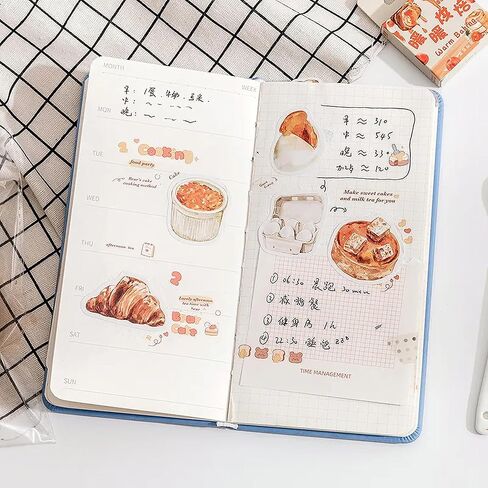 MONTH
WEEK
早: 1蛋, 牛奶, 玉米.
午: ~ ~ ~
晚: ~ ~ ~
MON
TUE
Cooking
food party
Bear's cake
cooking method
Cake
WED
THU
afternoon tea
FRI
Lovely afternoon
tea time with
bear
SAT
SUN
早 ≈ 310
午 ≈ 545
晚 ≈ 330
加点 ≈ 120
Make sweet cakes
and milk tea for you
① 06:30 晨跑 30min
② 减脂餐
③ 健身房 1h
④ 22:30 睡觉 zzz
TIME MANAGEMENT
暖烘焙
Warm Baking